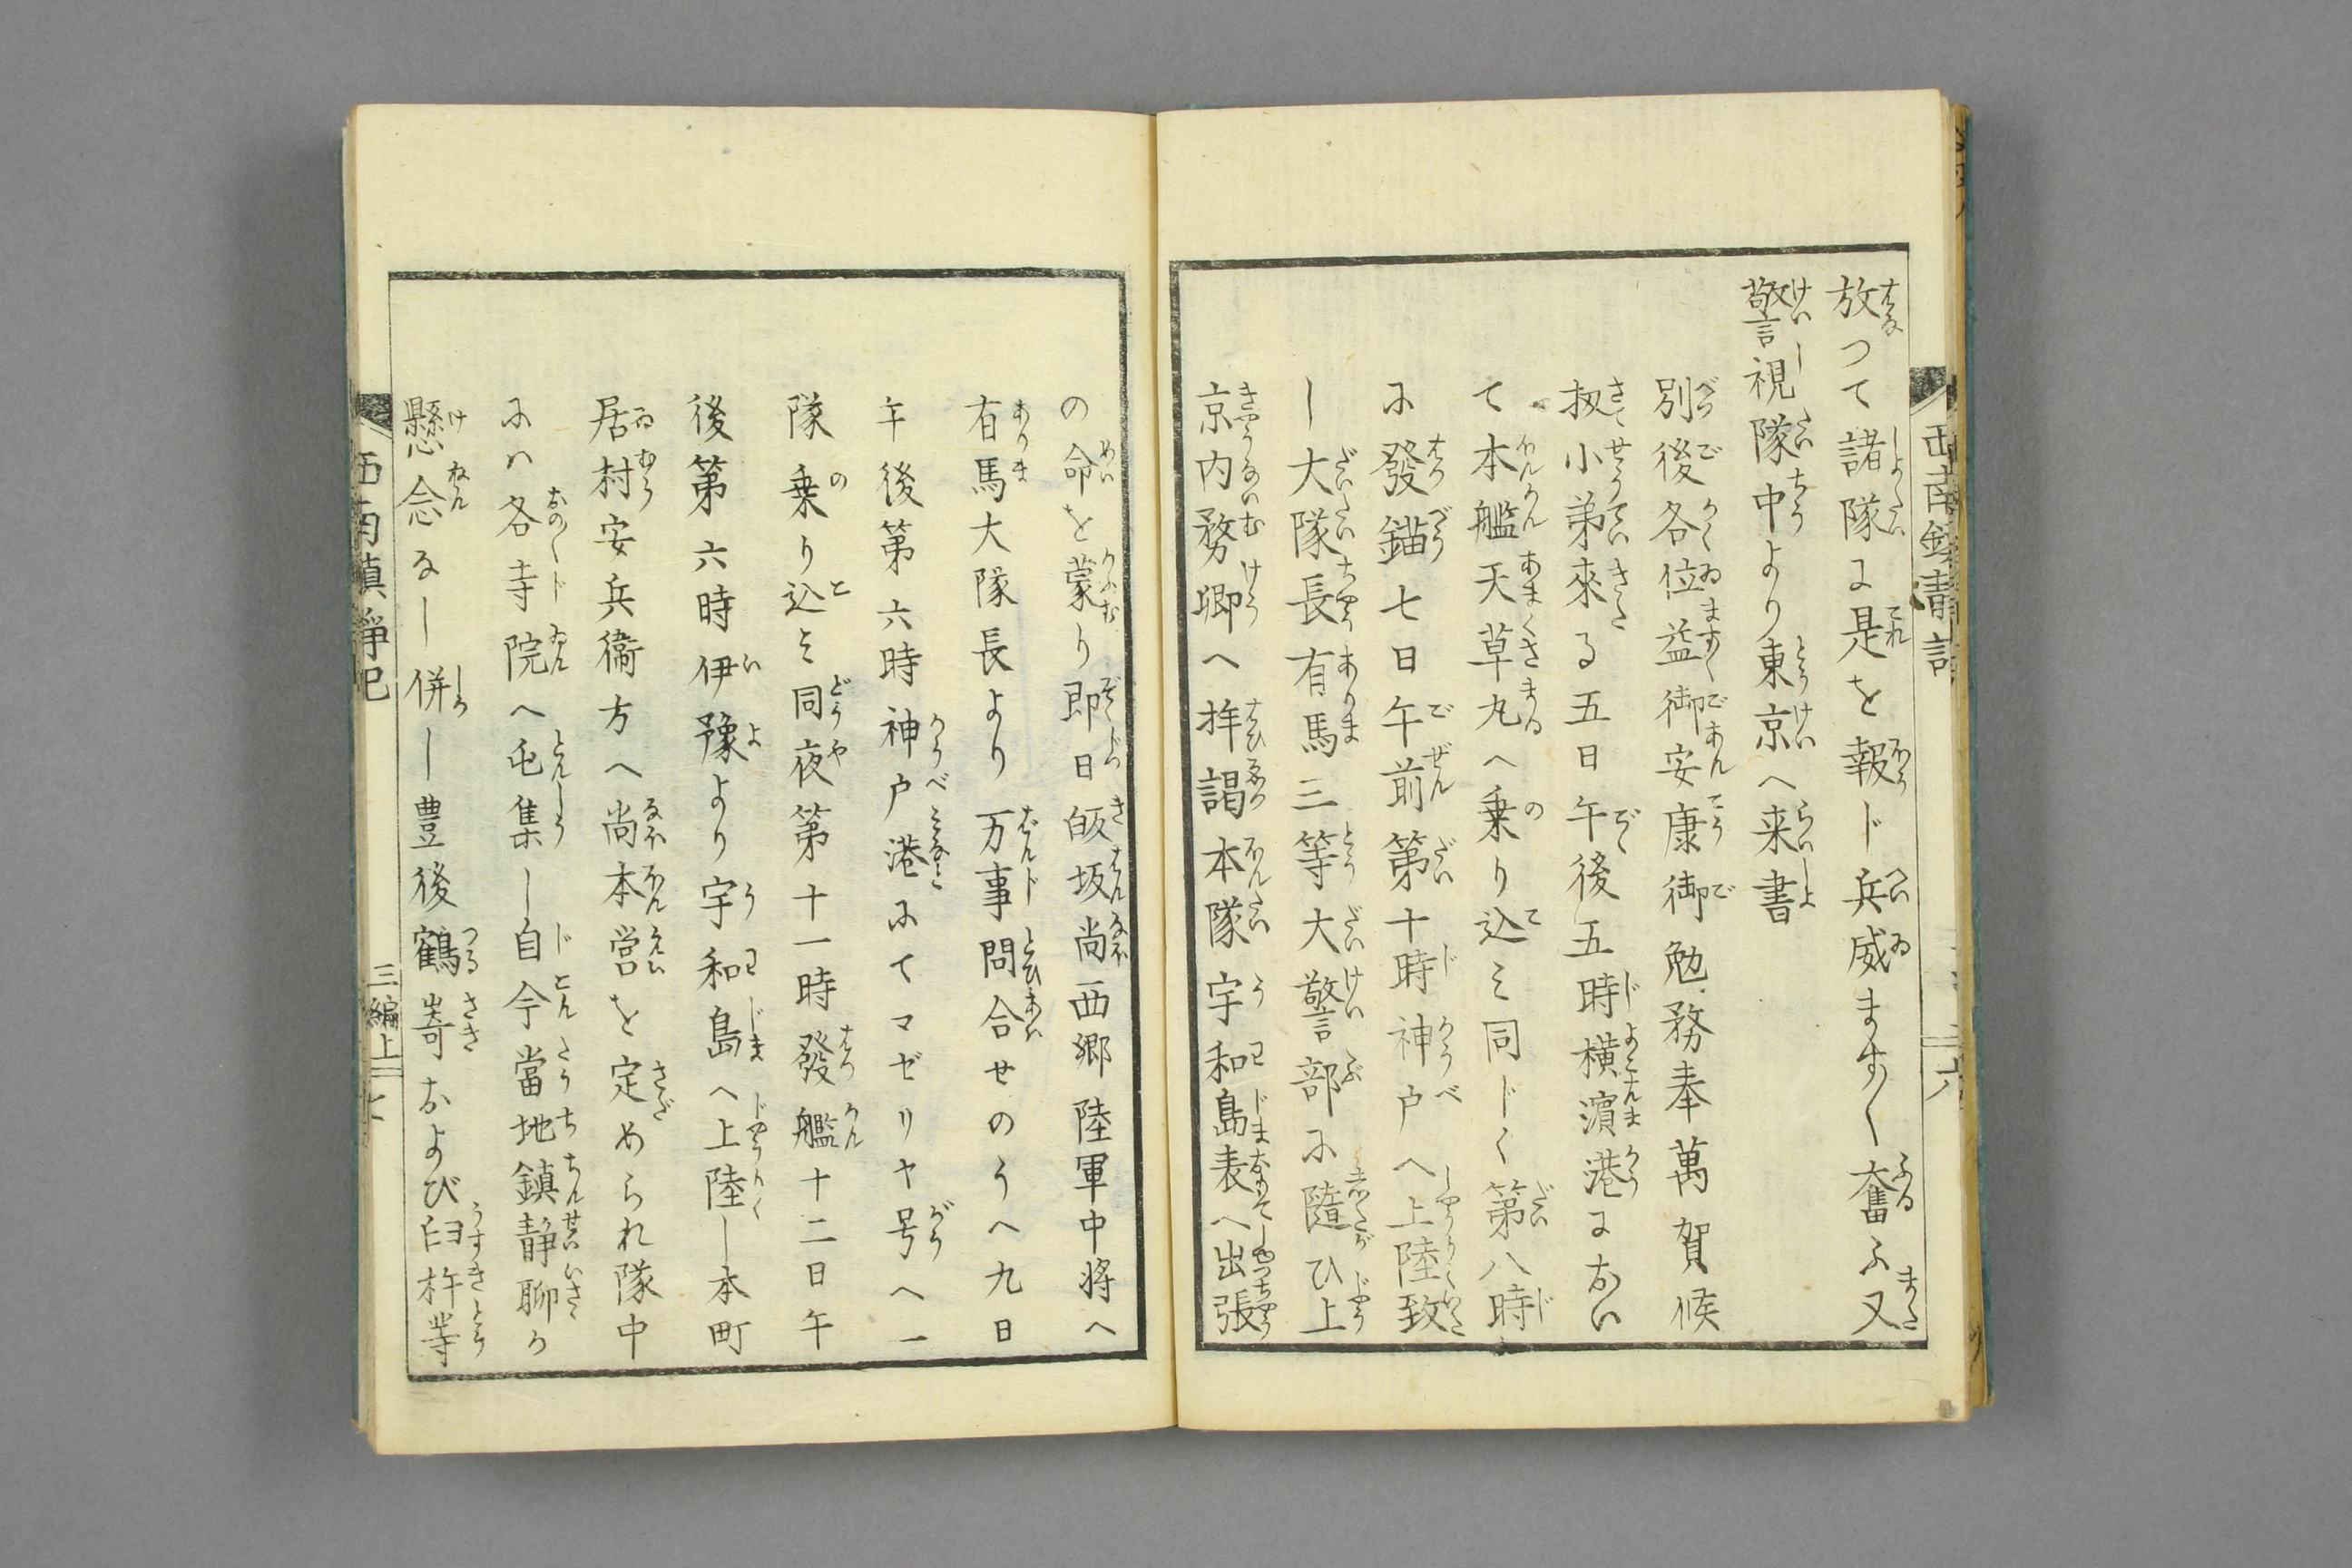 放つて諸隊に是を報じ兵威ます〳〵奮ふ又
警視隊中より東京へ来書
別後各位益御安康御勉務奉萬賀候
扨小弟來る五日午後五時横濵港におい
て本艦天草丸へ乗り込み同じく第八時
に發錨七日午前第十時神戸へ上陸致
し大隊長有馬三等大警部に隨ひ上
京内務卿へ拝謁本隊宇和島表へ出張
の命を蒙り即日皈坂尚西郷陸軍中将へ
有馬大隊長より万事問合せのうへ九日
午後第六時神戸港にてマゼリヤ号へ一
隊乗り込み同夜第十一時發艦十二日午
後第六時伊豫より宇和島へ上陸し本町
居村安兵衞方へ尚本営を定められ隊中
にハ各寺院へ屯集し自今當地鎮静聊か
懸念なし併し豊後鶴嵜および臼杵等
西南鎮静記
三編上